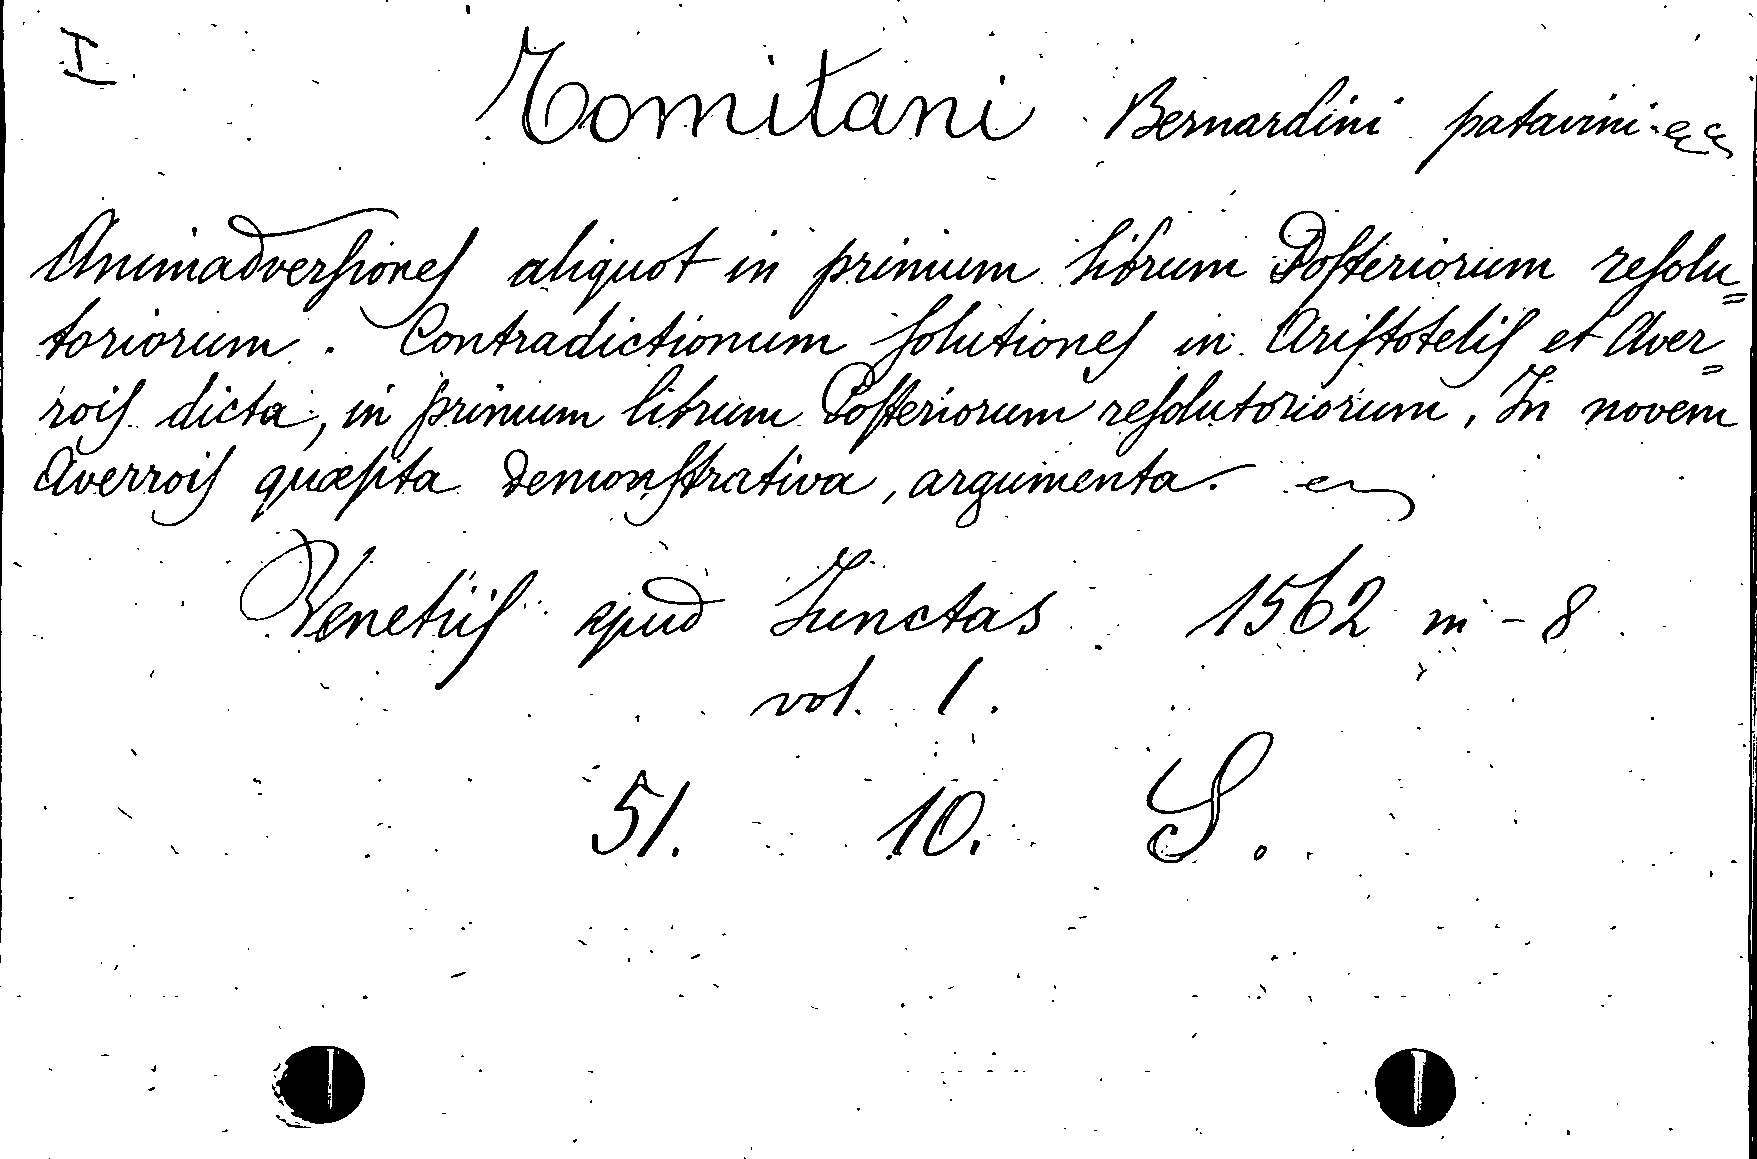 I
Tomitani Bernardini patavini
Animadversiones aliquot in primum librum Posteriorum resolu=
toriorum. Contradictionum solutiones in Aristotelis et Aver=
rois dicta, in primum librum Posteriorum resolutoriorum, In novem
Averrois quæsita demonstrativa, argumenta.
Venetiis apud Junctas 1562 in-8
vol. 1.
51. 10. S.